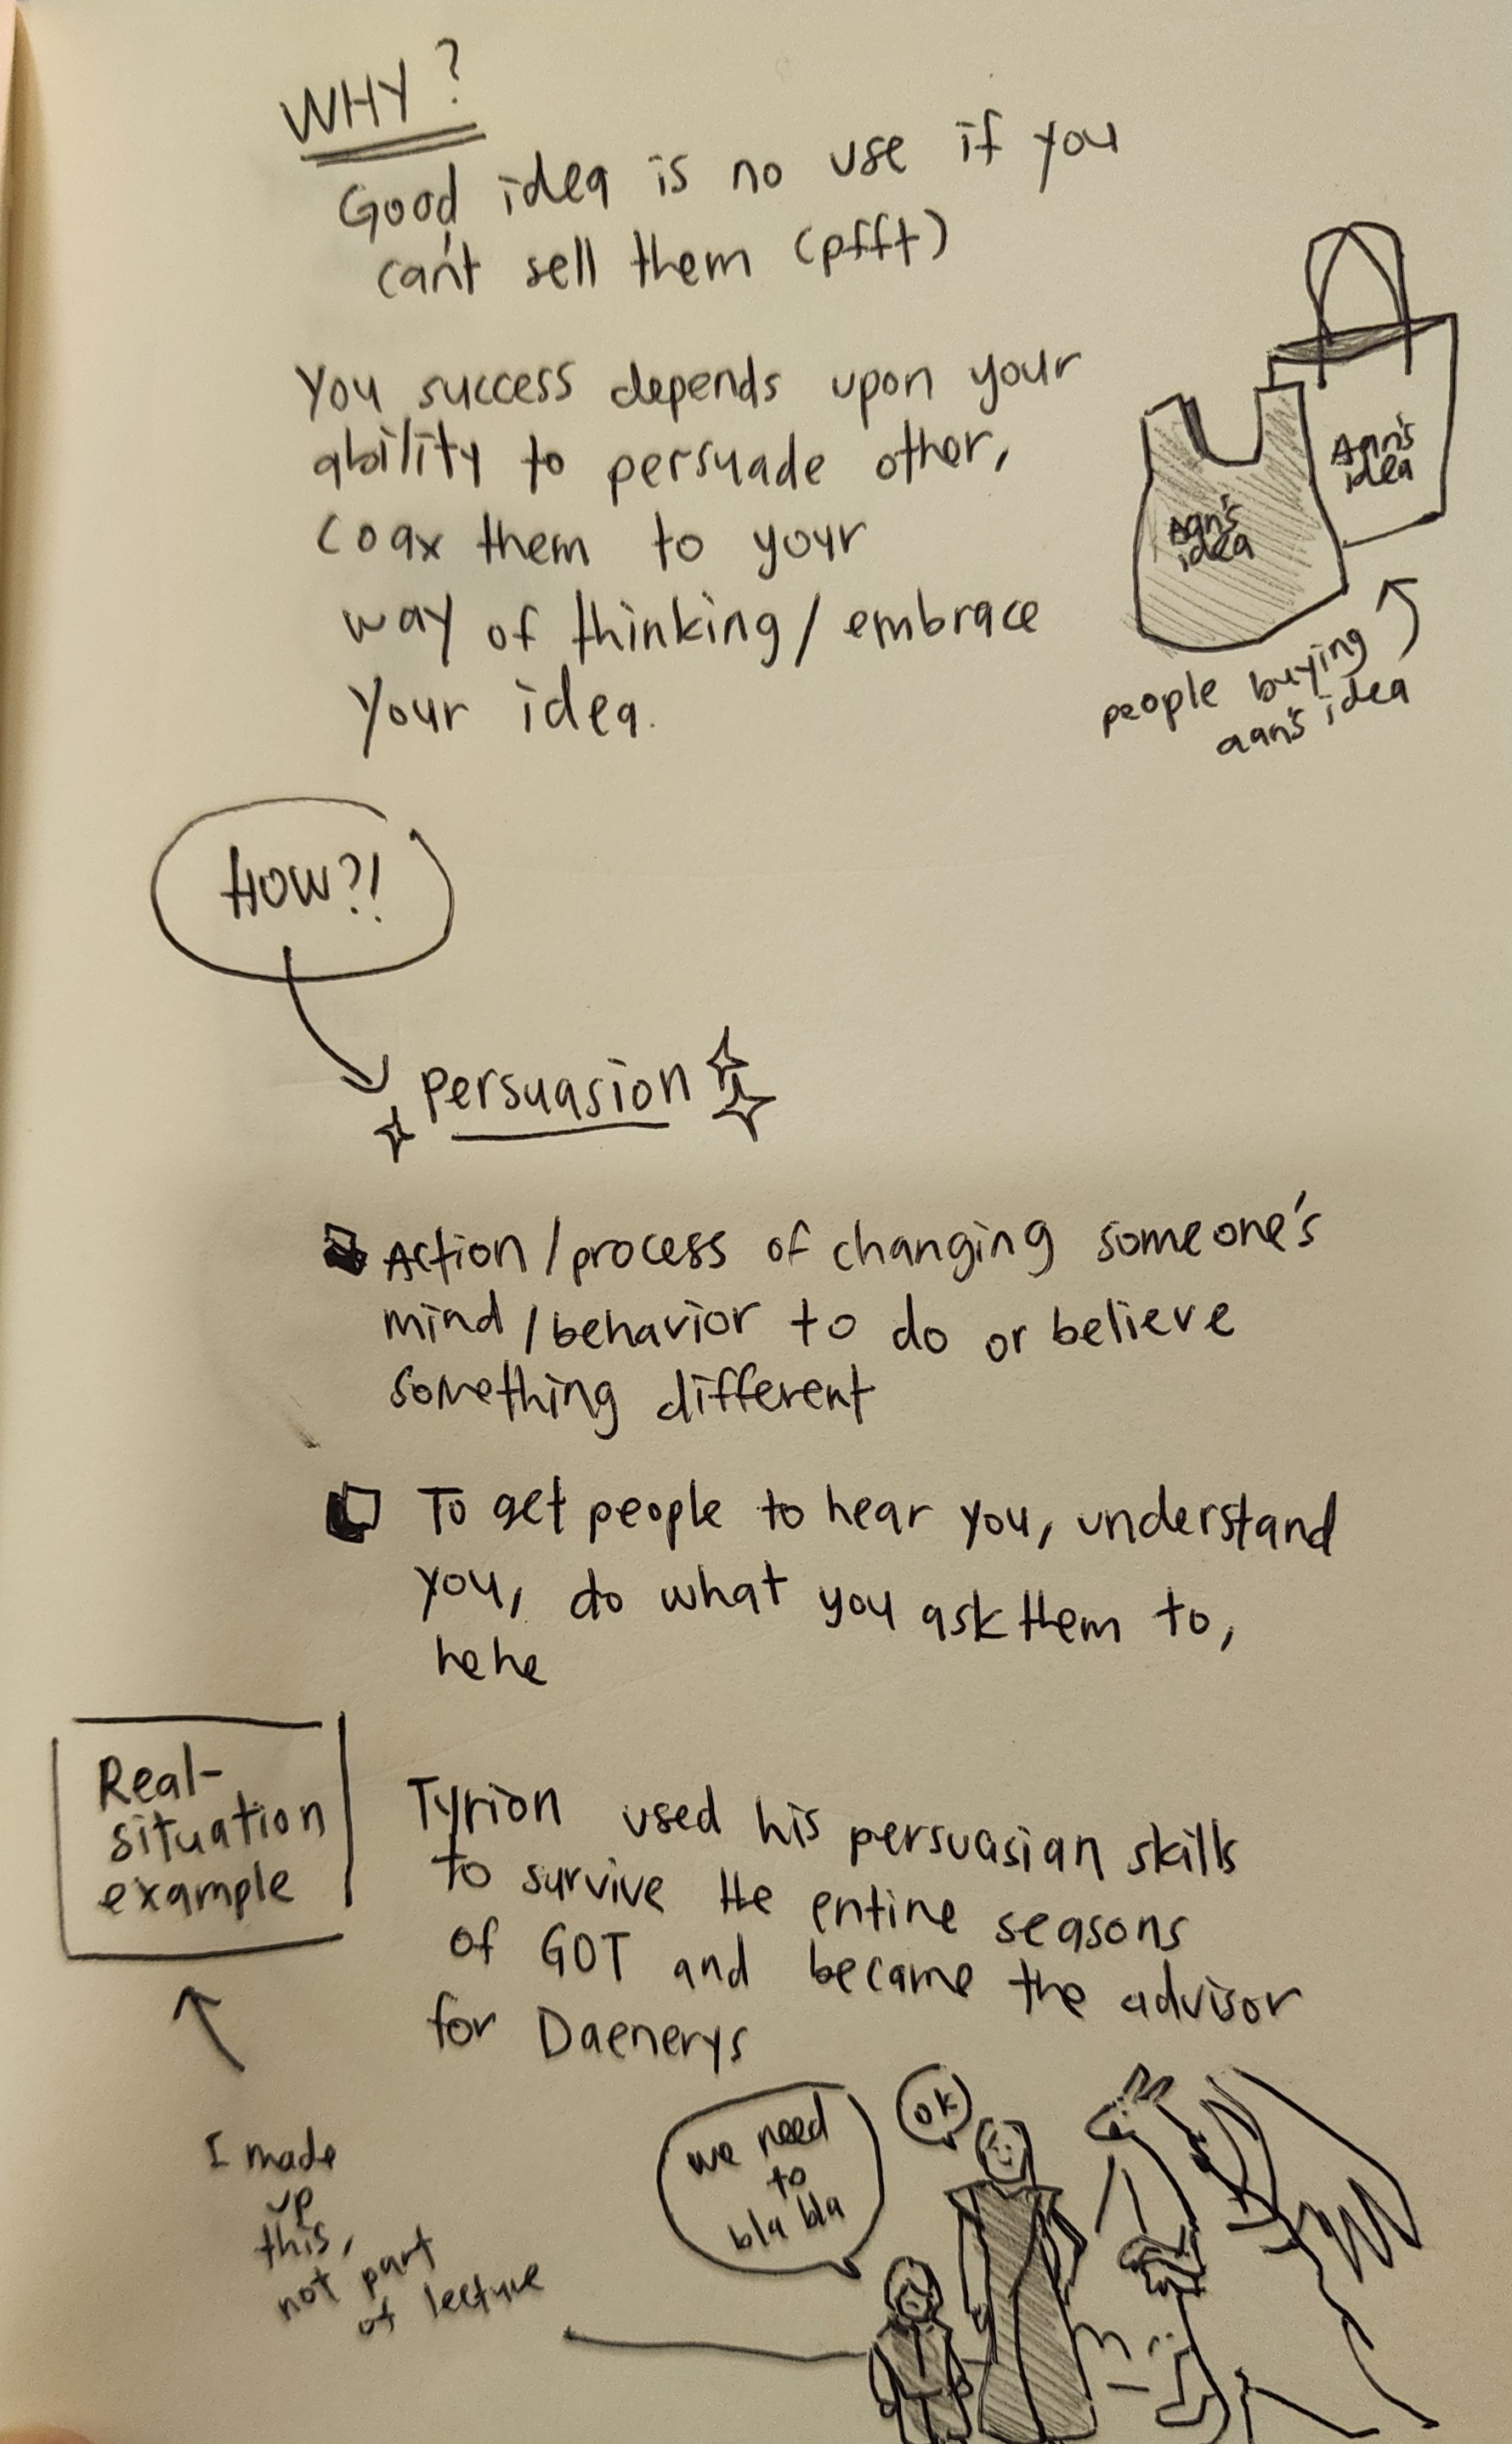 WHY?
Good idea is no use if you
can't sell them (pfft)
You success depends upon your
ability to persuade other,
coax them to your
way of thinking / embrace
your idea.
Aan's
idea
Aan's
idea
people buying
aan's idea
HOW?!
persuasion
Action/process of changing someone's
mind/behavior to do or believe
something different
To get people to hear you, understand
you, do what you ask them to,
hehe
Real-
situation
example
Tyrion used his persuasian skills
to survive the entire seasons
of GOT and became the advisor
for Daenerys
I made
up
this,
not part
of lecture
we need
to
bla bla
ok